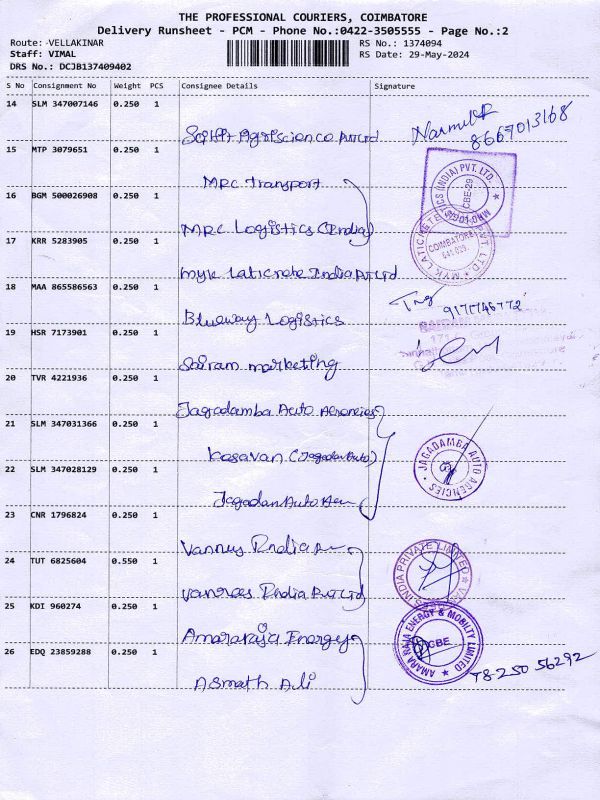 THE PROFESSIONAL COURIERS, COIMBATORE
Delivery Runsheet - PCM - Phone No.:0422-3505555 - Page No.:2
Route: VELLAKINAR
RS No.: 1374094
Staff: VIMAL
RS Date: 29-May-2024
DRS No.: DCJB137409402
S No Consignment No Weight PCS Consignee Details Signature
14 SLM 347007146 0.250 1
Agriscience Pvt Ltd
8667013168
15 MTP 3079651 0.250 1
MRC Transport
16 BGM 500026908 0.250 1
MRC Logistics (India)
17 KRR 5283905 0.250 1
Myk Laticrete India Pvt Ltd
18 MAA 865586563 0.250 1
Blueway Logistics
19 HSR 7173901 0.250 1
Sairam marketing
20 TVR 4221936 0.250 1
Jagadamba Auto Agencies
21 SLM 347031366 0.250 1
Kesavan (Jagadan Auto)
22 SLM 347028129 0.250 1
Jagadan Auto
23 CNR 1796824 0.250 1
India
24 TUT 6825604 0.550 1
India Pvt Ltd
25 KDI 960274 0.250 1
Amararaja Energy
26 EDQ 23859288 0.250 1
Asmath Ali
CBE-29
MYK LATICRETE
COIMBATORE
JAGADAMBA AUTO AGENCIES
INDIA PRIVATE LIMITED
AMARA RAJA ENERGY & MOBILITY LIMITED
CBE